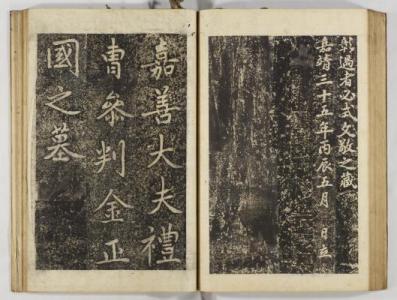 過者必式文敬之藏
嘉靖三十五年丙辰五月 日立
嘉善大夫禮
曺參判金正
國之墓